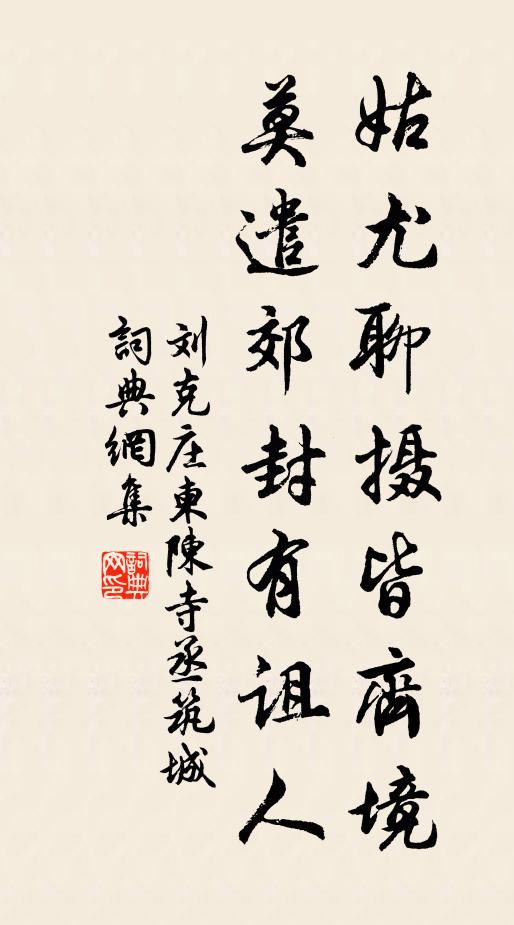 姑尤聊摄皆齊境
莫遣郊封有诅人
刘克庄東陳寺丞筑城
詞典網集
詞典網印